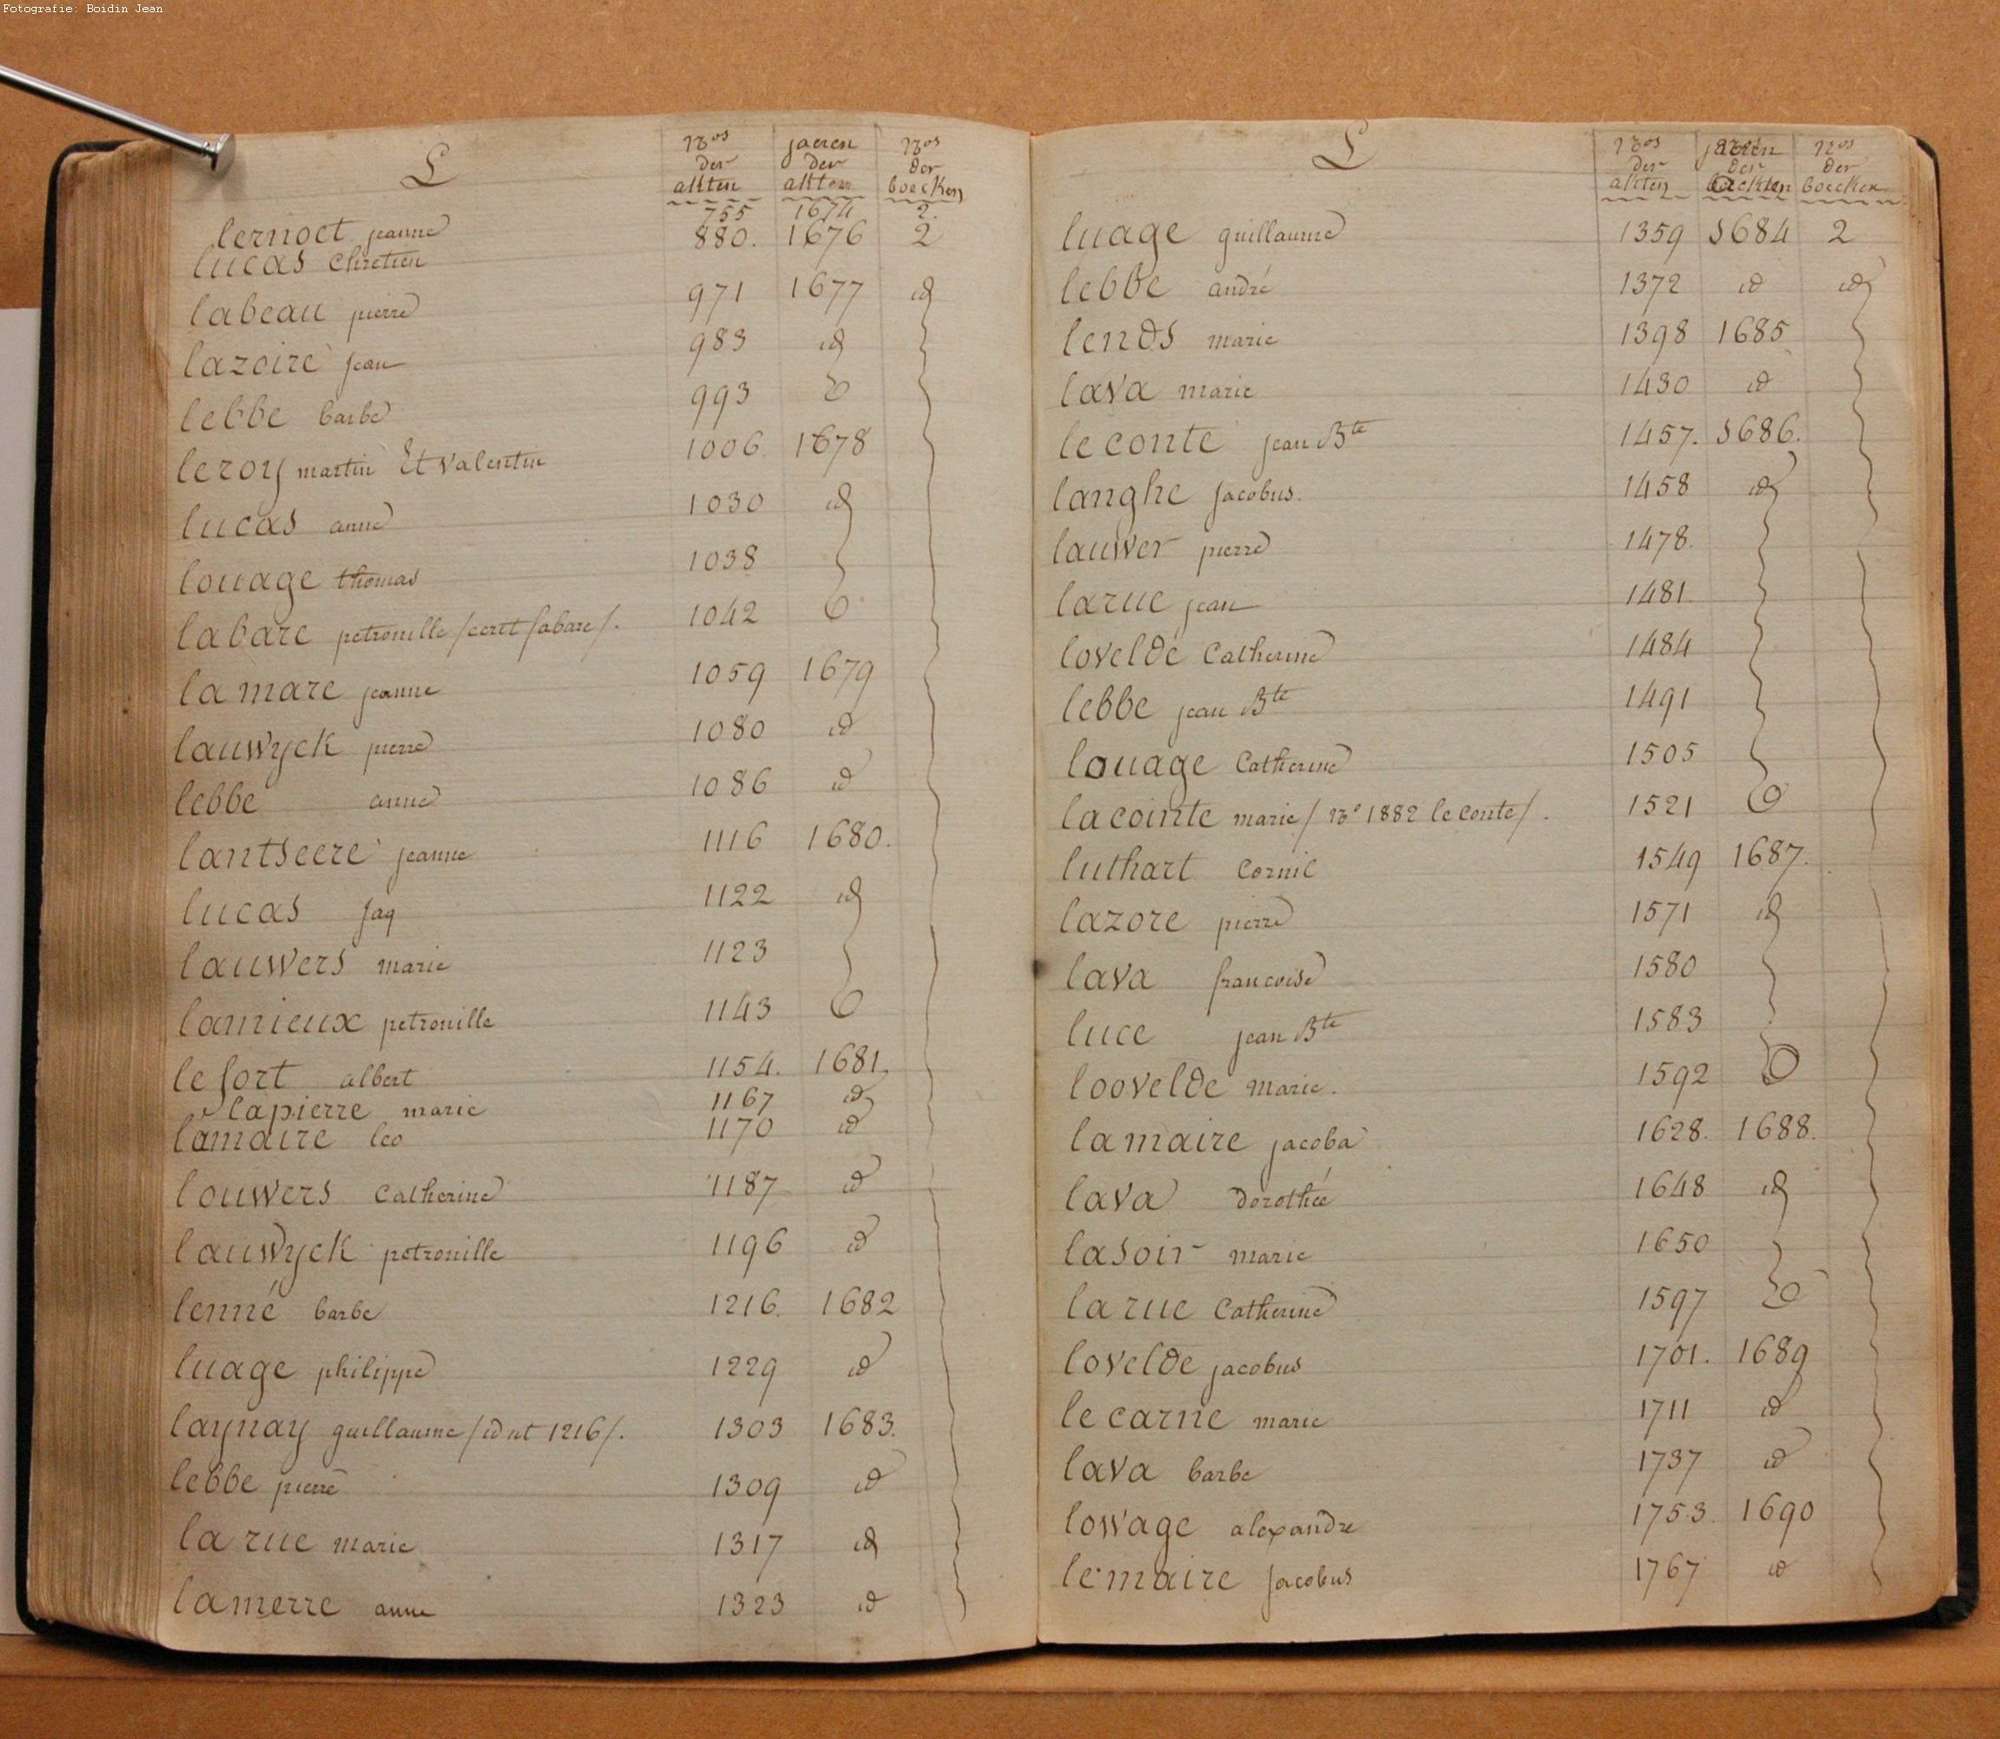 Fotografie: Boidin Jean
L
Nos jaeren Nos
der der der
akten akten boecken
lernoet jeanne 755 1674 2.
lucas Chretien 880. 1676 2
labeau pierre 971 1677 id
lazoire jean 983 id
lebbe barbe 993
leroy martin Et valentin 1006. 1678
lucas anne 1030 id
louage thomas 1038
labare petronille /ecrit sabare/. 1042
la mare jeanne 1059 1679
lauwyck pierre 1080 id
lebbe anne 1086 id
lantseere jeanne 1116 1680.
lucas jaq 1122 id
lauwers marie 1123
lamieux petronille 1143
le fort albert 1154. 1681.
lapierre marie 1167 id
lamaire leo 1170 id
louwers Catherine 1187 id
lauwyck petronille 1196 id
lenné barbe 1216. 1682
luage philippe 1229 id
laynay guillaume /id nt 1216/. 1303 1683.
lebbe pierre 1309 id
la rue marie 1317 id
lamerre anne 1323 id
L
Nos jaeren Nos
der der der
akten boecken
luage guillaume 1359 1684 2
lebbe andré 1372 id id
lends marie 1398 1685
lava marie 1430 id
le conte jean Bte 1457. 1686.
langhe Jacobus. 1458 id
lauwer pierre 1478.
larue jean 1481
lovelde Catherine 1484
lebbe jean Bte 1491
louage Catherine 1505
lacointe marie / No 1882 le conte/. 1521
luthart Cornil 1549 1687.
lazore pierre 1571 id
lava francoise 1580
luce jean Bte 1583
loovelde marie. 1592
lamaire jacoba 1628. 1688.
lava dorothée 1648 id
lasoir marie 1650
la rue Catherine 1597
lovelde jacobus 1701. 1689
le carne marie 1711 id
lava barbe 1737 id
lowage alexandre 1753. 1690
lemaire Jacobus 1767 id